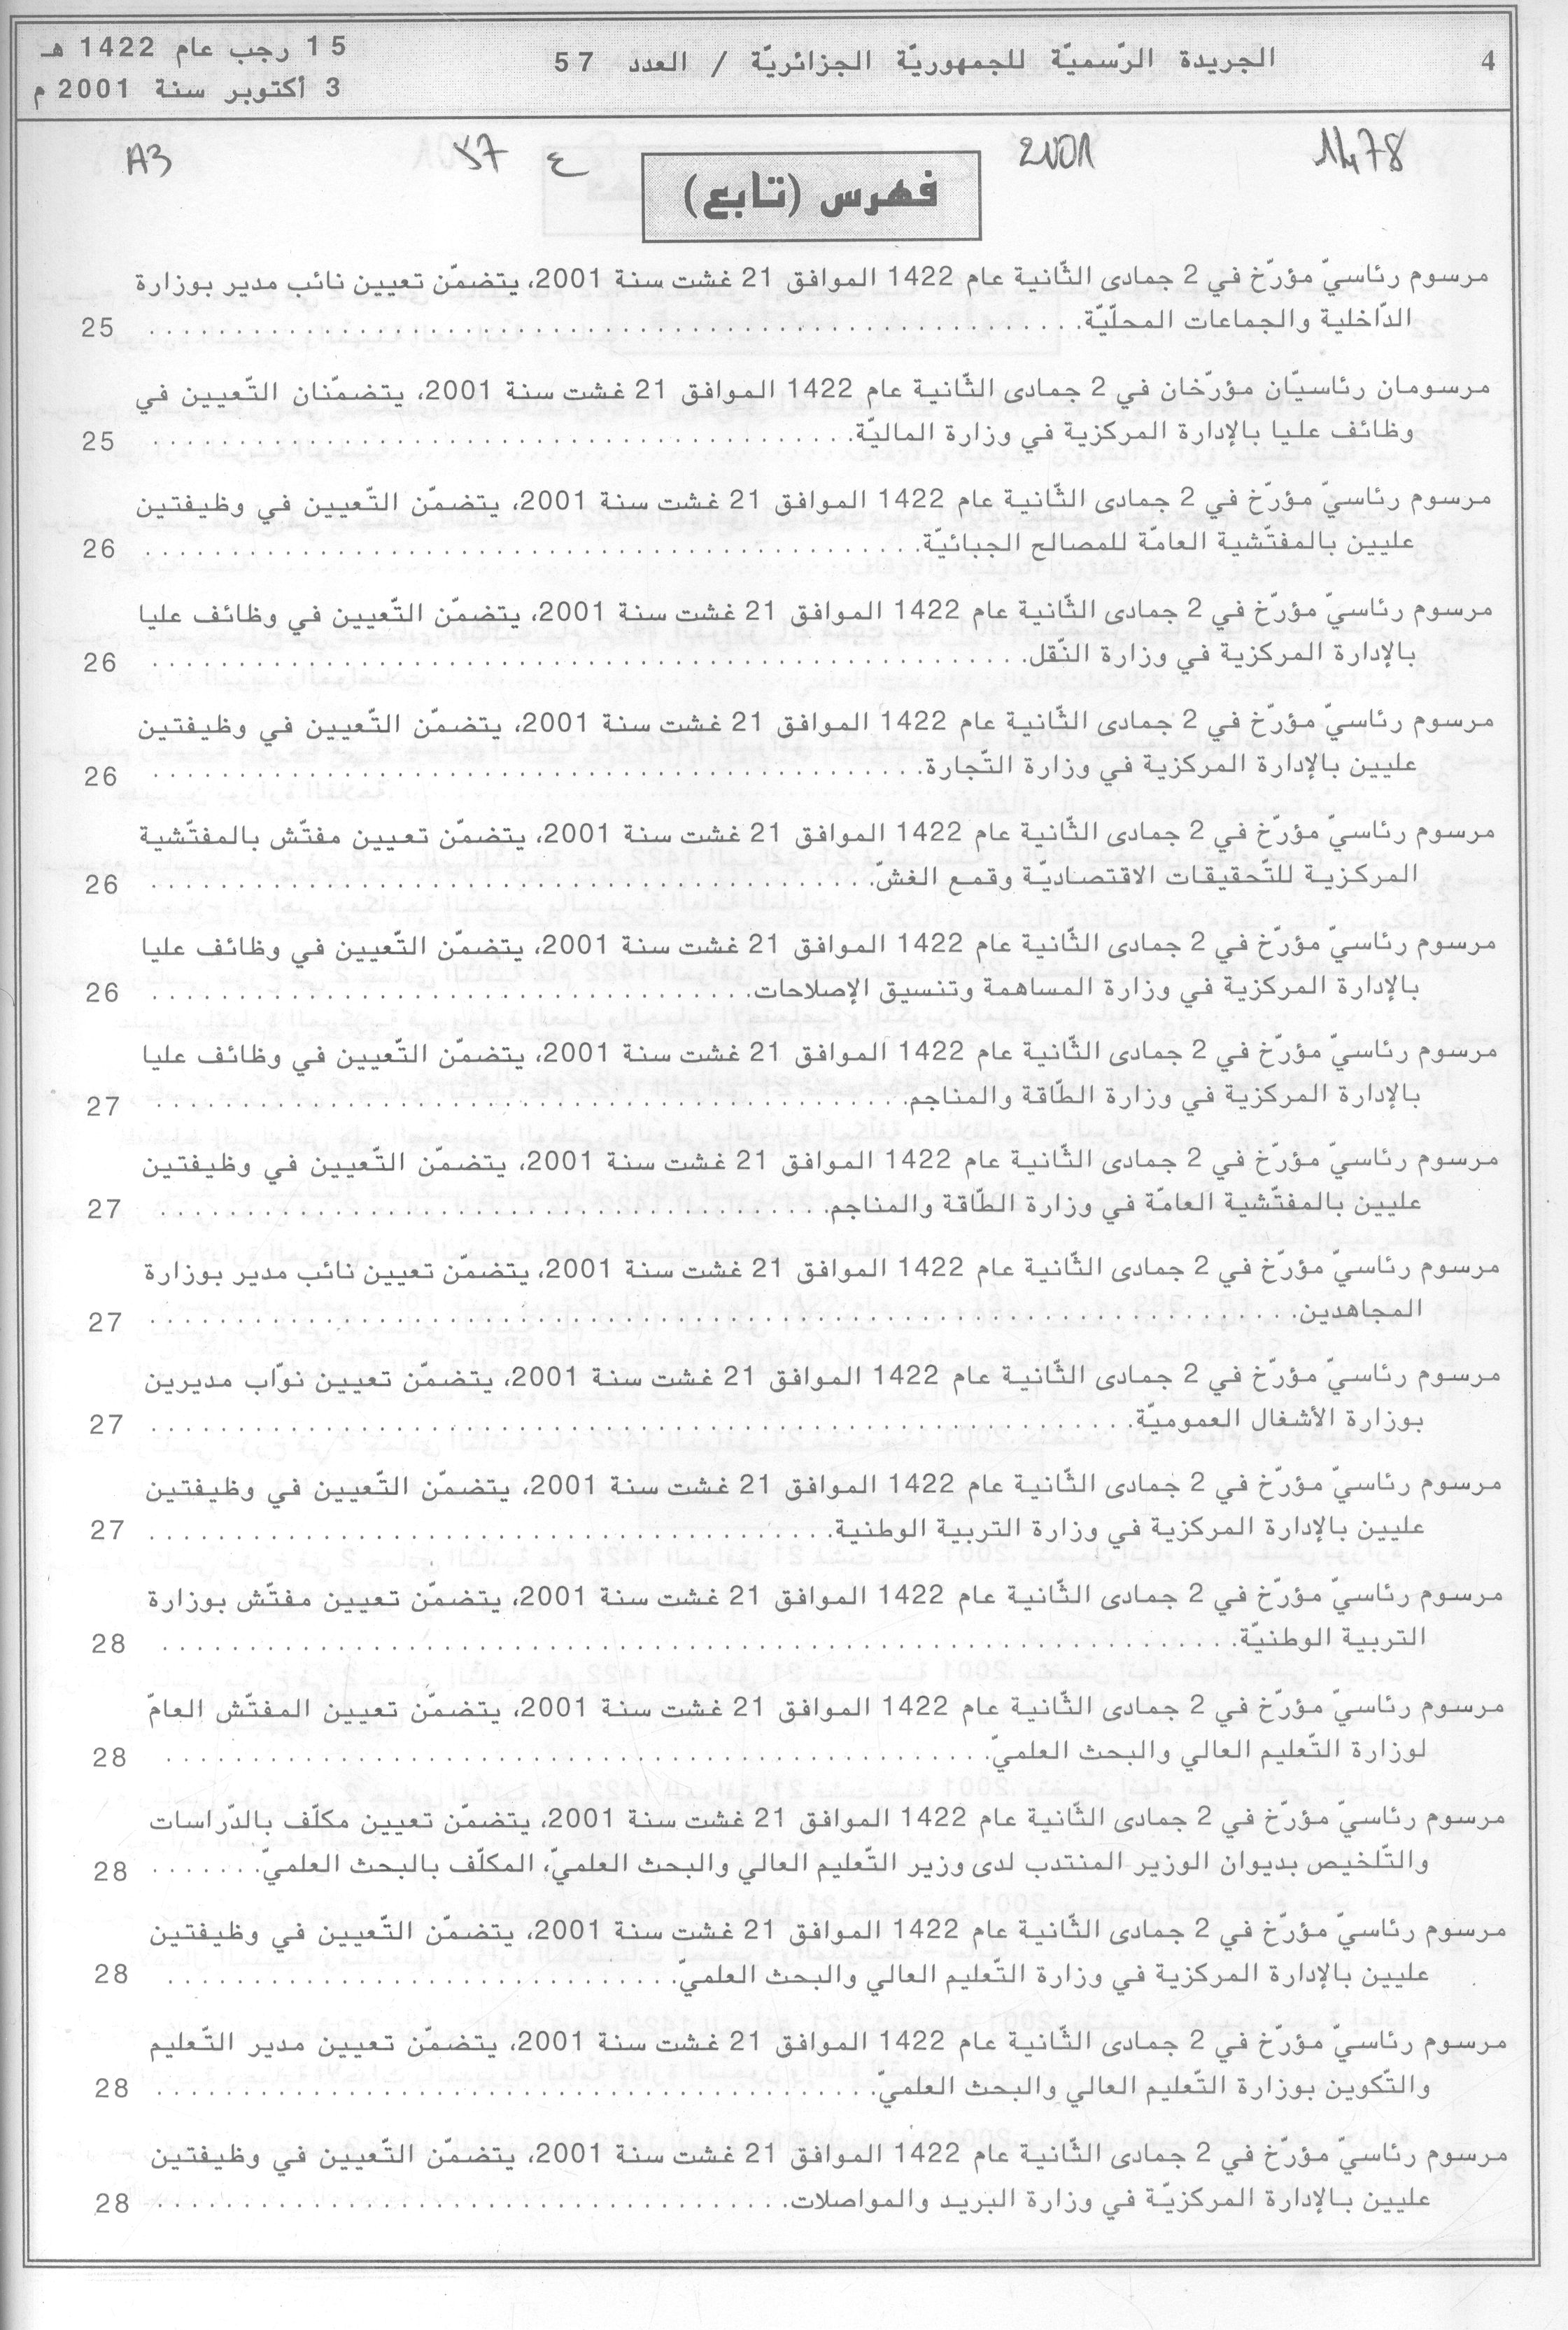 4
الجريدة الرّسميّة للجمهوريّة الجزائريّة / العدد 57
15 رجب عام 1422 هـ
3 أكتوبر سنة 2001 م
1478
2001
ع 57
A3
فهرس (تابع)
مرسوم رئاسيّ مؤرّخ في 2 جمادى الثّانية عام 1422 الموافق 21 غشت سنة 2001، يتضمّن تعيين نائب مدير بوزارة
الدّاخلية والجماعات المحلّيّة. 25
مرسومان رئاسيّان مؤرّخان في 2 جمادى الثّانية عام 1422 الموافق 21 غشت سنة 2001، يتضمّنان التّعيين في
وظائف عليا بالإدارة المركزية في وزارة الماليّة. 25
مرسوم رئاسيّ مؤرّخ في 2 جمادى الثّانية عام 1422 الموافق 21 غشت سنة 2001، يتضمّن التّعيين في وظيفتين
عليين بالمفتّشية العامّة للمصالح الجبائيّة. 26
مرسوم رئاسيّ مؤرّخ في 2 جمادى الثّانية عام 1422 الموافق 21 غشت سنة 2001، يتضمّن التّعيين في وظائف عليا
بالإدارة المركزية في وزارة النّقل. 26
مرسوم رئاسيّ مؤرّخ في 2 جمادى الثّانية عام 1422 الموافق 21 غشت سنة 2001، يتضمّن التّعيين في وظيفتين
عليين بالإدارة المركزية في وزارة التّجارة. 26
مرسوم رئاسيّ مؤرّخ في 2 جمادى الثّانية عام 1422 الموافق 21 غشت سنة 2001، يتضمّن تعيين مفتّش بالمفتّشية
المركزية للتّحقيقات الاقتصاديّة وقمع الغشّ. 26
مرسوم رئاسيّ مؤرّخ في 2 جمادى الثّانية عام 1422 الموافق 21 غشت سنة 2001، يتضمّن التّعيين في وظائف عليا
بالإدارة المركزية في وزارة المساهمة وتنسيق الإصلاحات. 26
مرسوم رئاسيّ مؤرّخ في 2 جمادى الثّانية عام 1422 الموافق 21 غشت سنة 2001، يتضمّن التّعيين في وظائف عليا
بالإدارة المركزية في وزارة الطّاقة والمناجم. 27
مرسوم رئاسيّ مؤرّخ في 2 جمادى الثّانية عام 1422 الموافق 21 غشت سنة 2001، يتضمّن التّعيين في وظيفتين
عليين بالمفتّشية العامّة في وزارة الطّاقة والمناجم. 27
مرسوم رئاسيّ مؤرّخ في 2 جمادى الثّانية عام 1422 الموافق 21 غشت سنة 2001، يتضمّن تعيين نائب مدير بوزارة
المجاهدين. 27
مرسوم رئاسيّ مؤرّخ في 2 جمادى الثّانية عام 1422 الموافق 21 غشت سنة 2001، يتضمّن تعيين نوّاب مديرين
بوزارة الأشغال العموميّة. 27
مرسوم رئاسيّ مؤرّخ في 2 جمادى الثّانية عام 1422 الموافق 21 غشت سنة 2001، يتضمّن التّعيين في وظيفتين
عليين بالإدارة المركزية في وزارة التربية الوطنية. 27
مرسوم رئاسيّ مؤرّخ في 2 جمادى الثّانية عام 1422 الموافق 21 غشت سنة 2001، يتضمّن تعيين مفتّش بوزارة
التربية الوطنيّة. 28
مرسوم رئاسيّ مؤرّخ في 2 جمادى الثّانية عام 1422 الموافق 21 غشت سنة 2001، يتضمّن تعيين المفتّش العامّ
لوزارة التّعليم العالي والبحث العلميّ. 28
مرسوم رئاسيّ مؤرّخ في 2 جمادى الثّانية عام 1422 الموافق 21 غشت سنة 2001، يتضمّن تعيين مكلّف بالدّراسات
والتّلخيص بديوان الوزير المنتدب لدى وزير التّعليم العالي والبحث العلميّ، المكلّف بالبحث العلميّ. 28
مرسوم رئاسيّ مؤرّخ في 2 جمادى الثّانية عام 1422 الموافق 21 غشت سنة 2001، يتضمّن التّعيين في وظيفتين
عليين بالإدارة المركزية في وزارة التّعليم العالي والبحث العلميّ. 28
مرسوم رئاسيّ مؤرّخ في 2 جمادى الثّانية عام 1422 الموافق 21 غشت سنة 2001، يتضمّن تعيين مدير التّعليم
والتّكوين بوزارة التّعليم العالي والبحث العلميّ. 28
مرسوم رئاسيّ مؤرّخ في 2 جمادى الثّانية عام 1422 الموافق 21 غشت سنة 2001، يتضمّن التّعيين في وظيفتين
عليين بالإدارة المركزيّة في وزارة البريد والمواصلات. 28